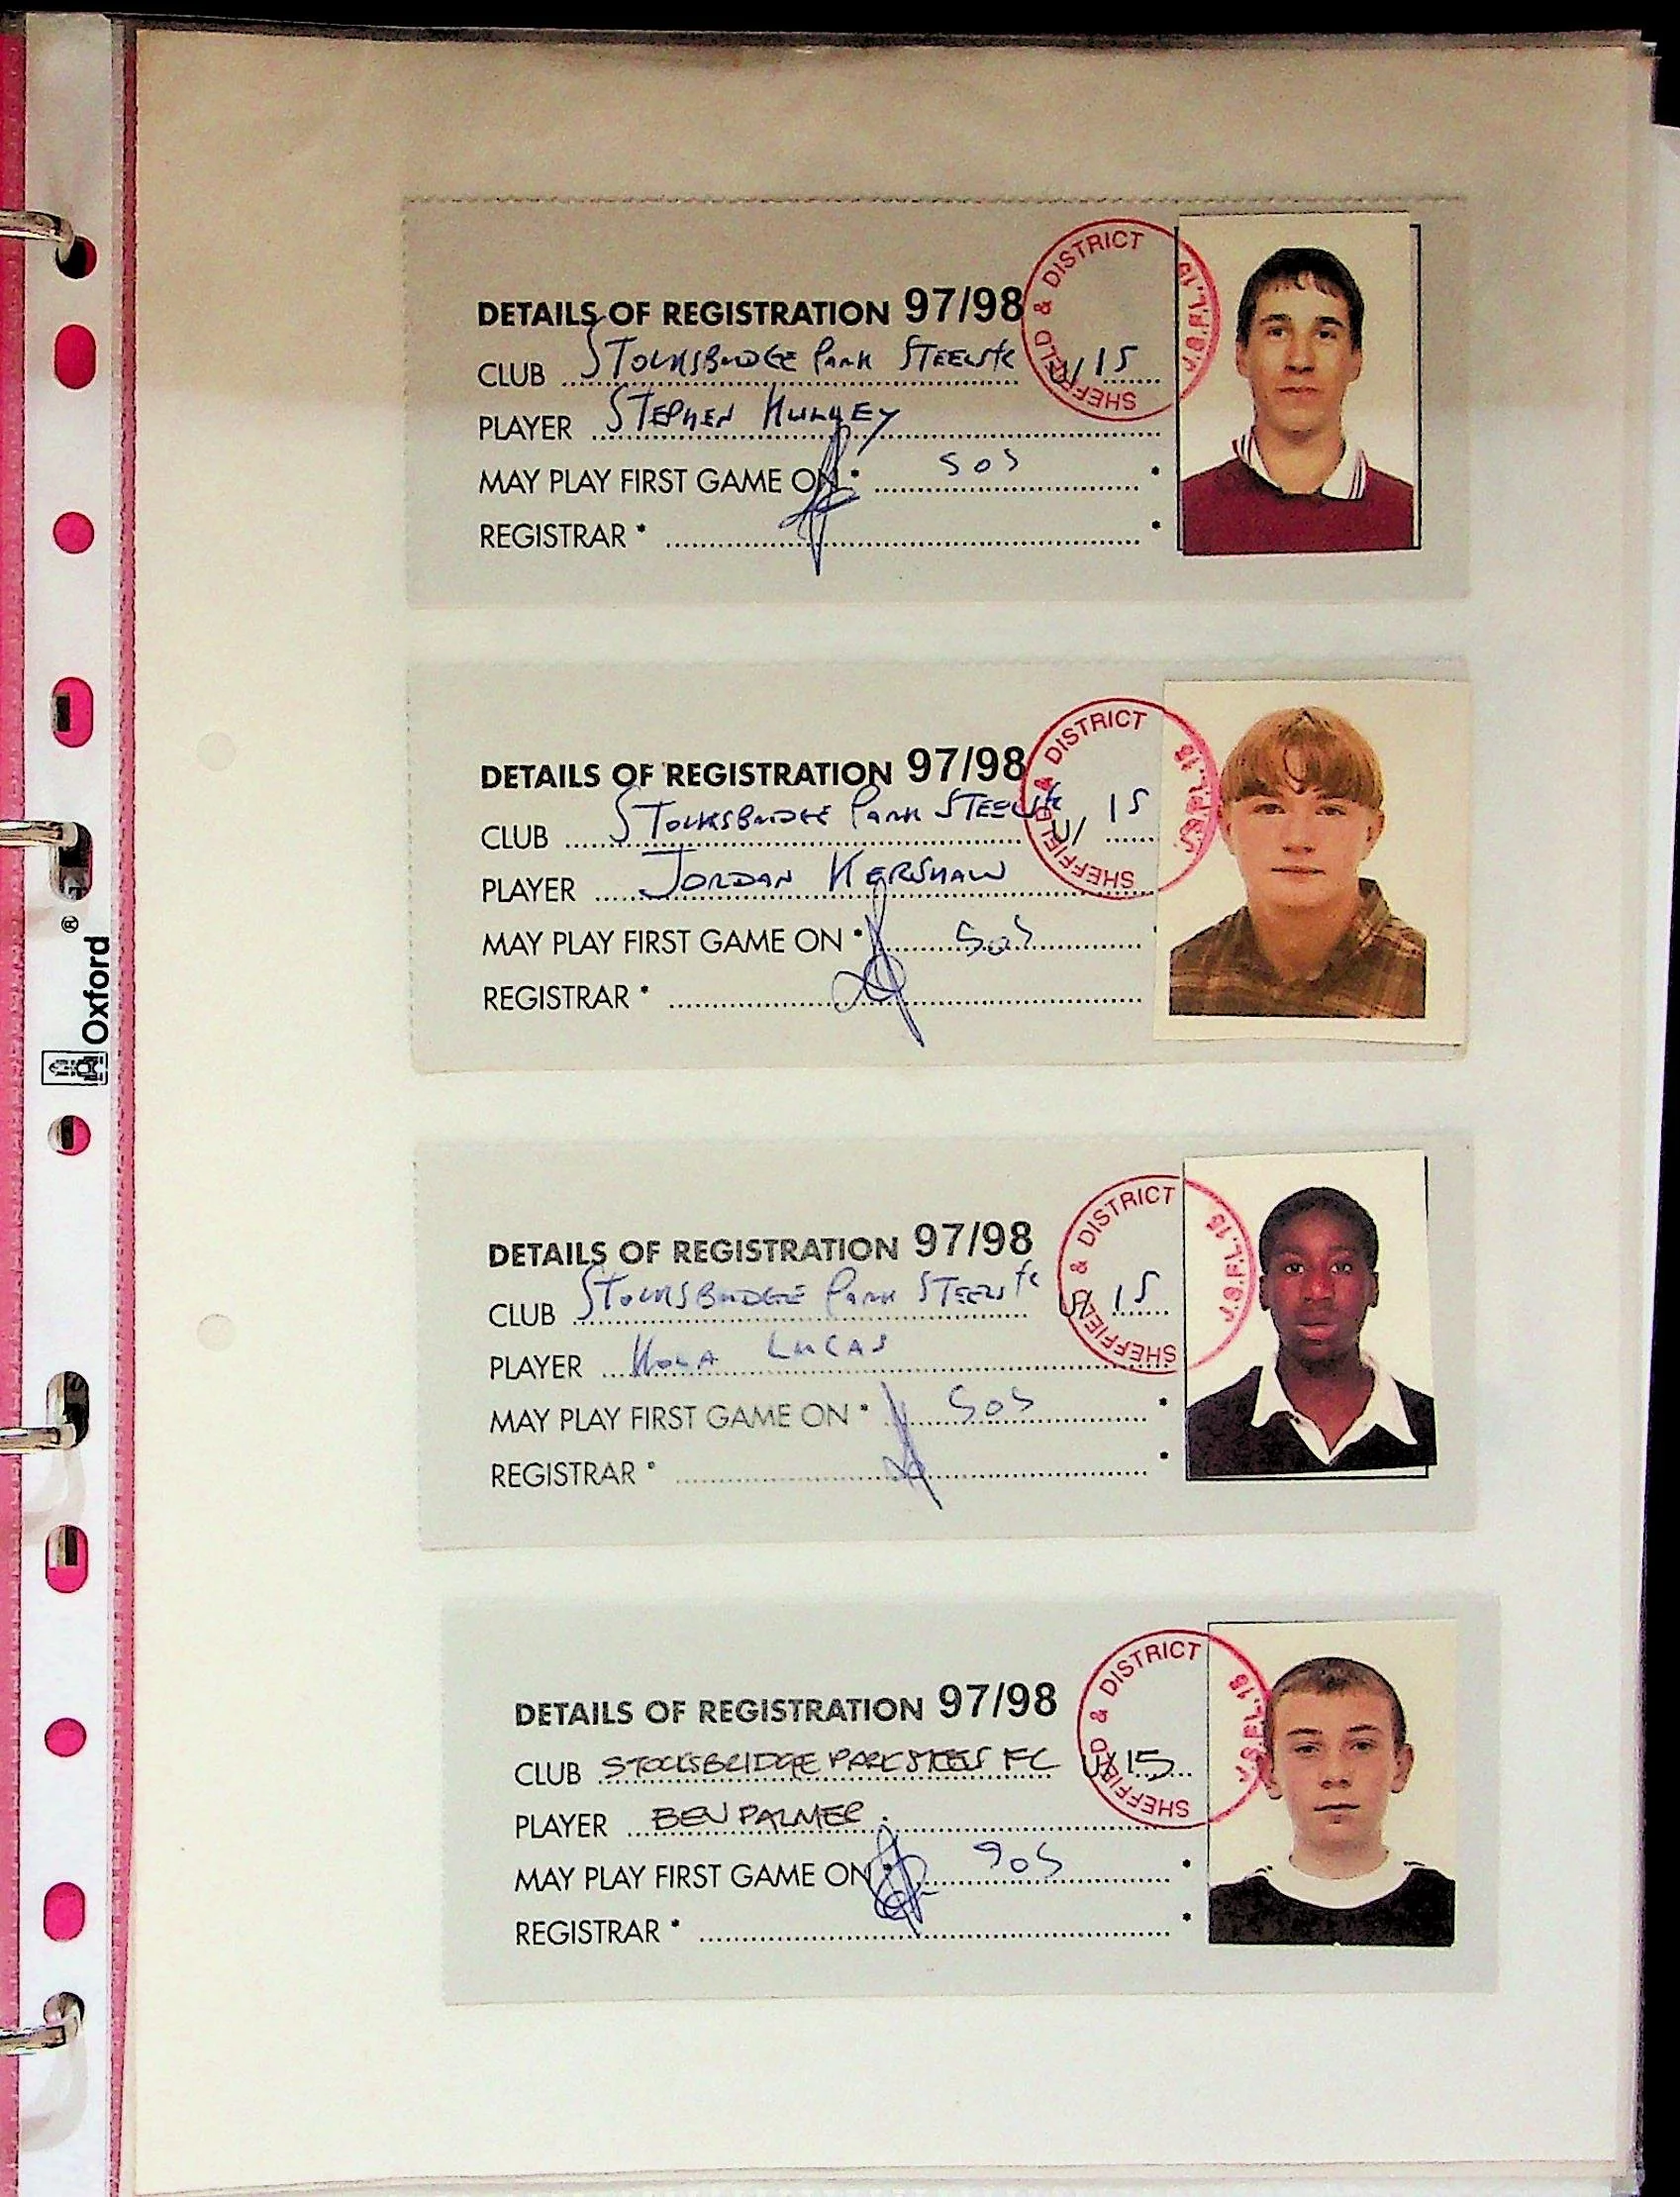 DETAILS OF REGISTRATION 97/98
CLUB STOCKSBRIDGE PARK STEELS FC U/ 15
PLAYER STEPHEN
MAY PLAY FIRST GAME ON * SOS *
REGISTRAR * *
SHEFFIELD & DISTRICT J.S.F.L. 18
DETAILS OF REGISTRATION 97/98
CLUB STOCKSBRIDGE PARK STEELS FC U/ 15
PLAYER JORDAN KERSHAW
MAY PLAY FIRST GAME ON * SOS
REGISTRAR *
SHEFFIELD & DISTRICT J.S.F.L. 18
DETAILS OF REGISTRATION 97/98
CLUB STOCKSBRIDGE PARK STEELS FC U/ 15
PLAYER KOLA LUCAS
MAY PLAY FIRST GAME ON * SOS *
REGISTRAR * *
SHEFFIELD & DISTRICT J.S.F.L. 18
DETAILS OF REGISTRATION 97/98
CLUB STOCKSBRIDGE PARK STEELS FC U/ 15
PLAYER BEN PALMER
MAY PLAY FIRST GAME ON * SOS *
REGISTRAR * *
SHEFFIELD & DISTRICT J.S.F.L. 18
Oxford ®